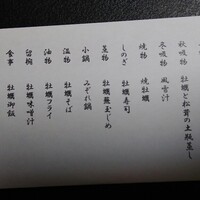 秋吸物 牡蠣と松茸の土瓶蒸し
冬吸物 風雪汁
焼物 焼牡蠣
しのぎ 牡蠣寿司
蒸物 牡蠣蕪玉じめ
小鍋 みぞれ鍋
温物 牡蠣そば
油物 牡蠣フライ
留椀 牡蠣味噌汁
食事 牡蠣御飯